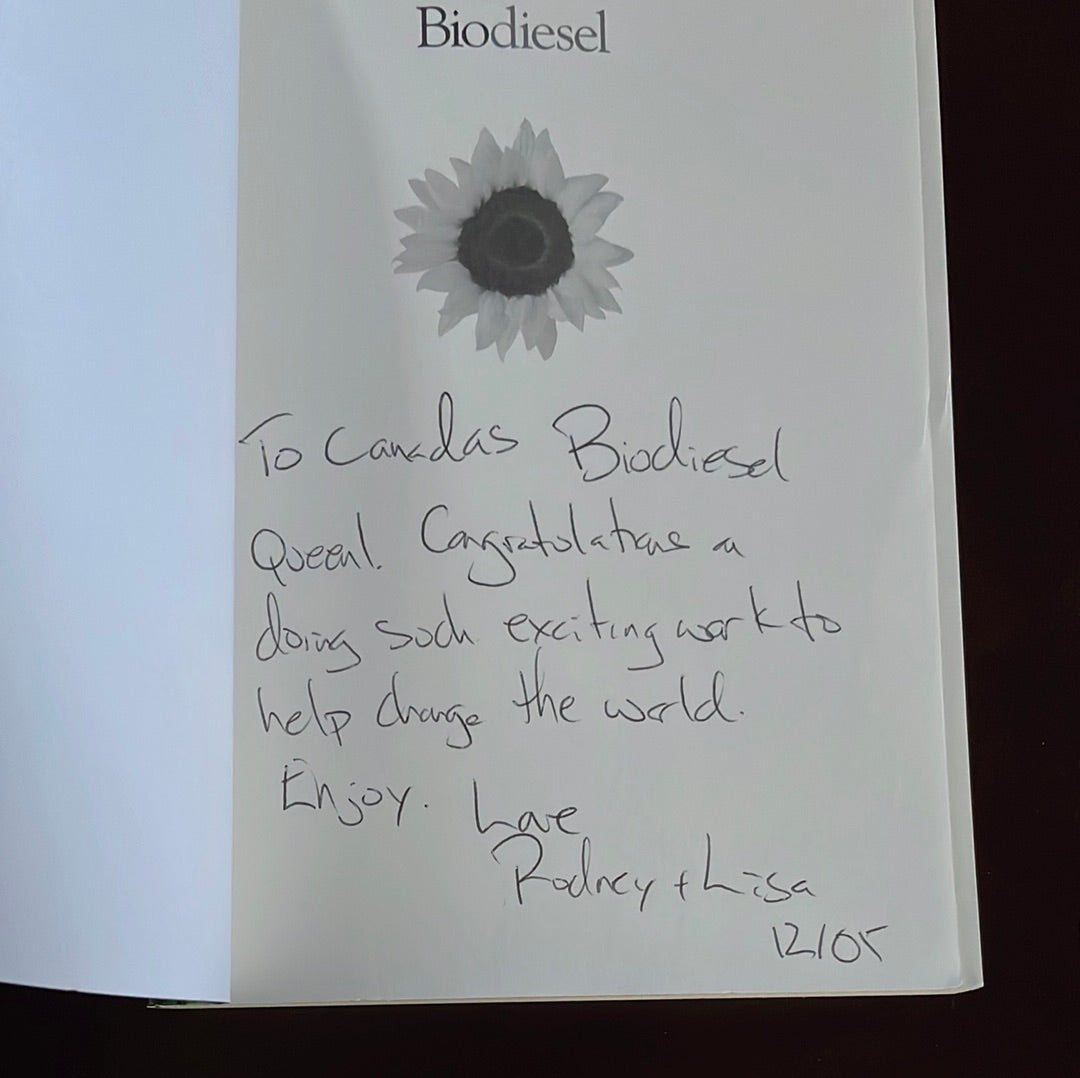 Biodiesel
To Canadas Biodiesel
Queen! Congratulations on
doing such exciting work to
help change the world.
Enjoy. Love
Rodney + Lisa
12/05